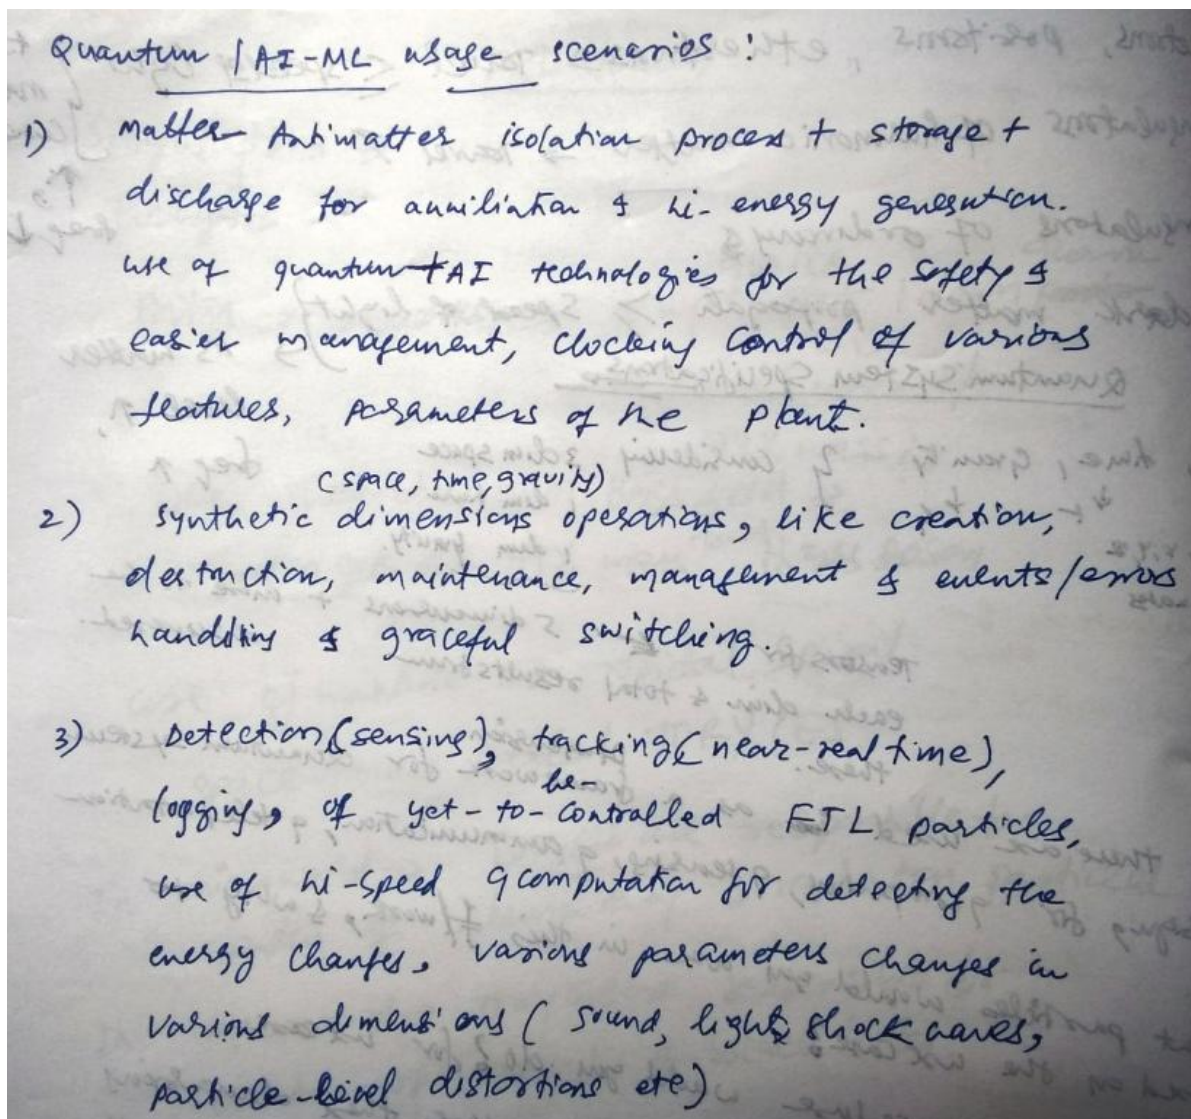 Quantum / AI-ML usage scenarios :
1) Matter Antimatter isolation process + storage +
discharge for anniliation & hi-energy generation.
use of quantum+AI technologies for the safety &
easier management, clocking control of various
features, parameters of the plant.
(space, time, gravity)
2) Synthetic dimensions operations, like creation,
destruction, maintenance, management & events/errors
handling & graceful switching.
3) Detection (sensing), tracking (near-real time),
be-
logging, of yet-to-controlled FTL particles,
use of hi-speed qcomputation for detecting the
energy changes, various parameters changes in
various dimensions ( sound, light, shock waves,
particle-level distortions etc)